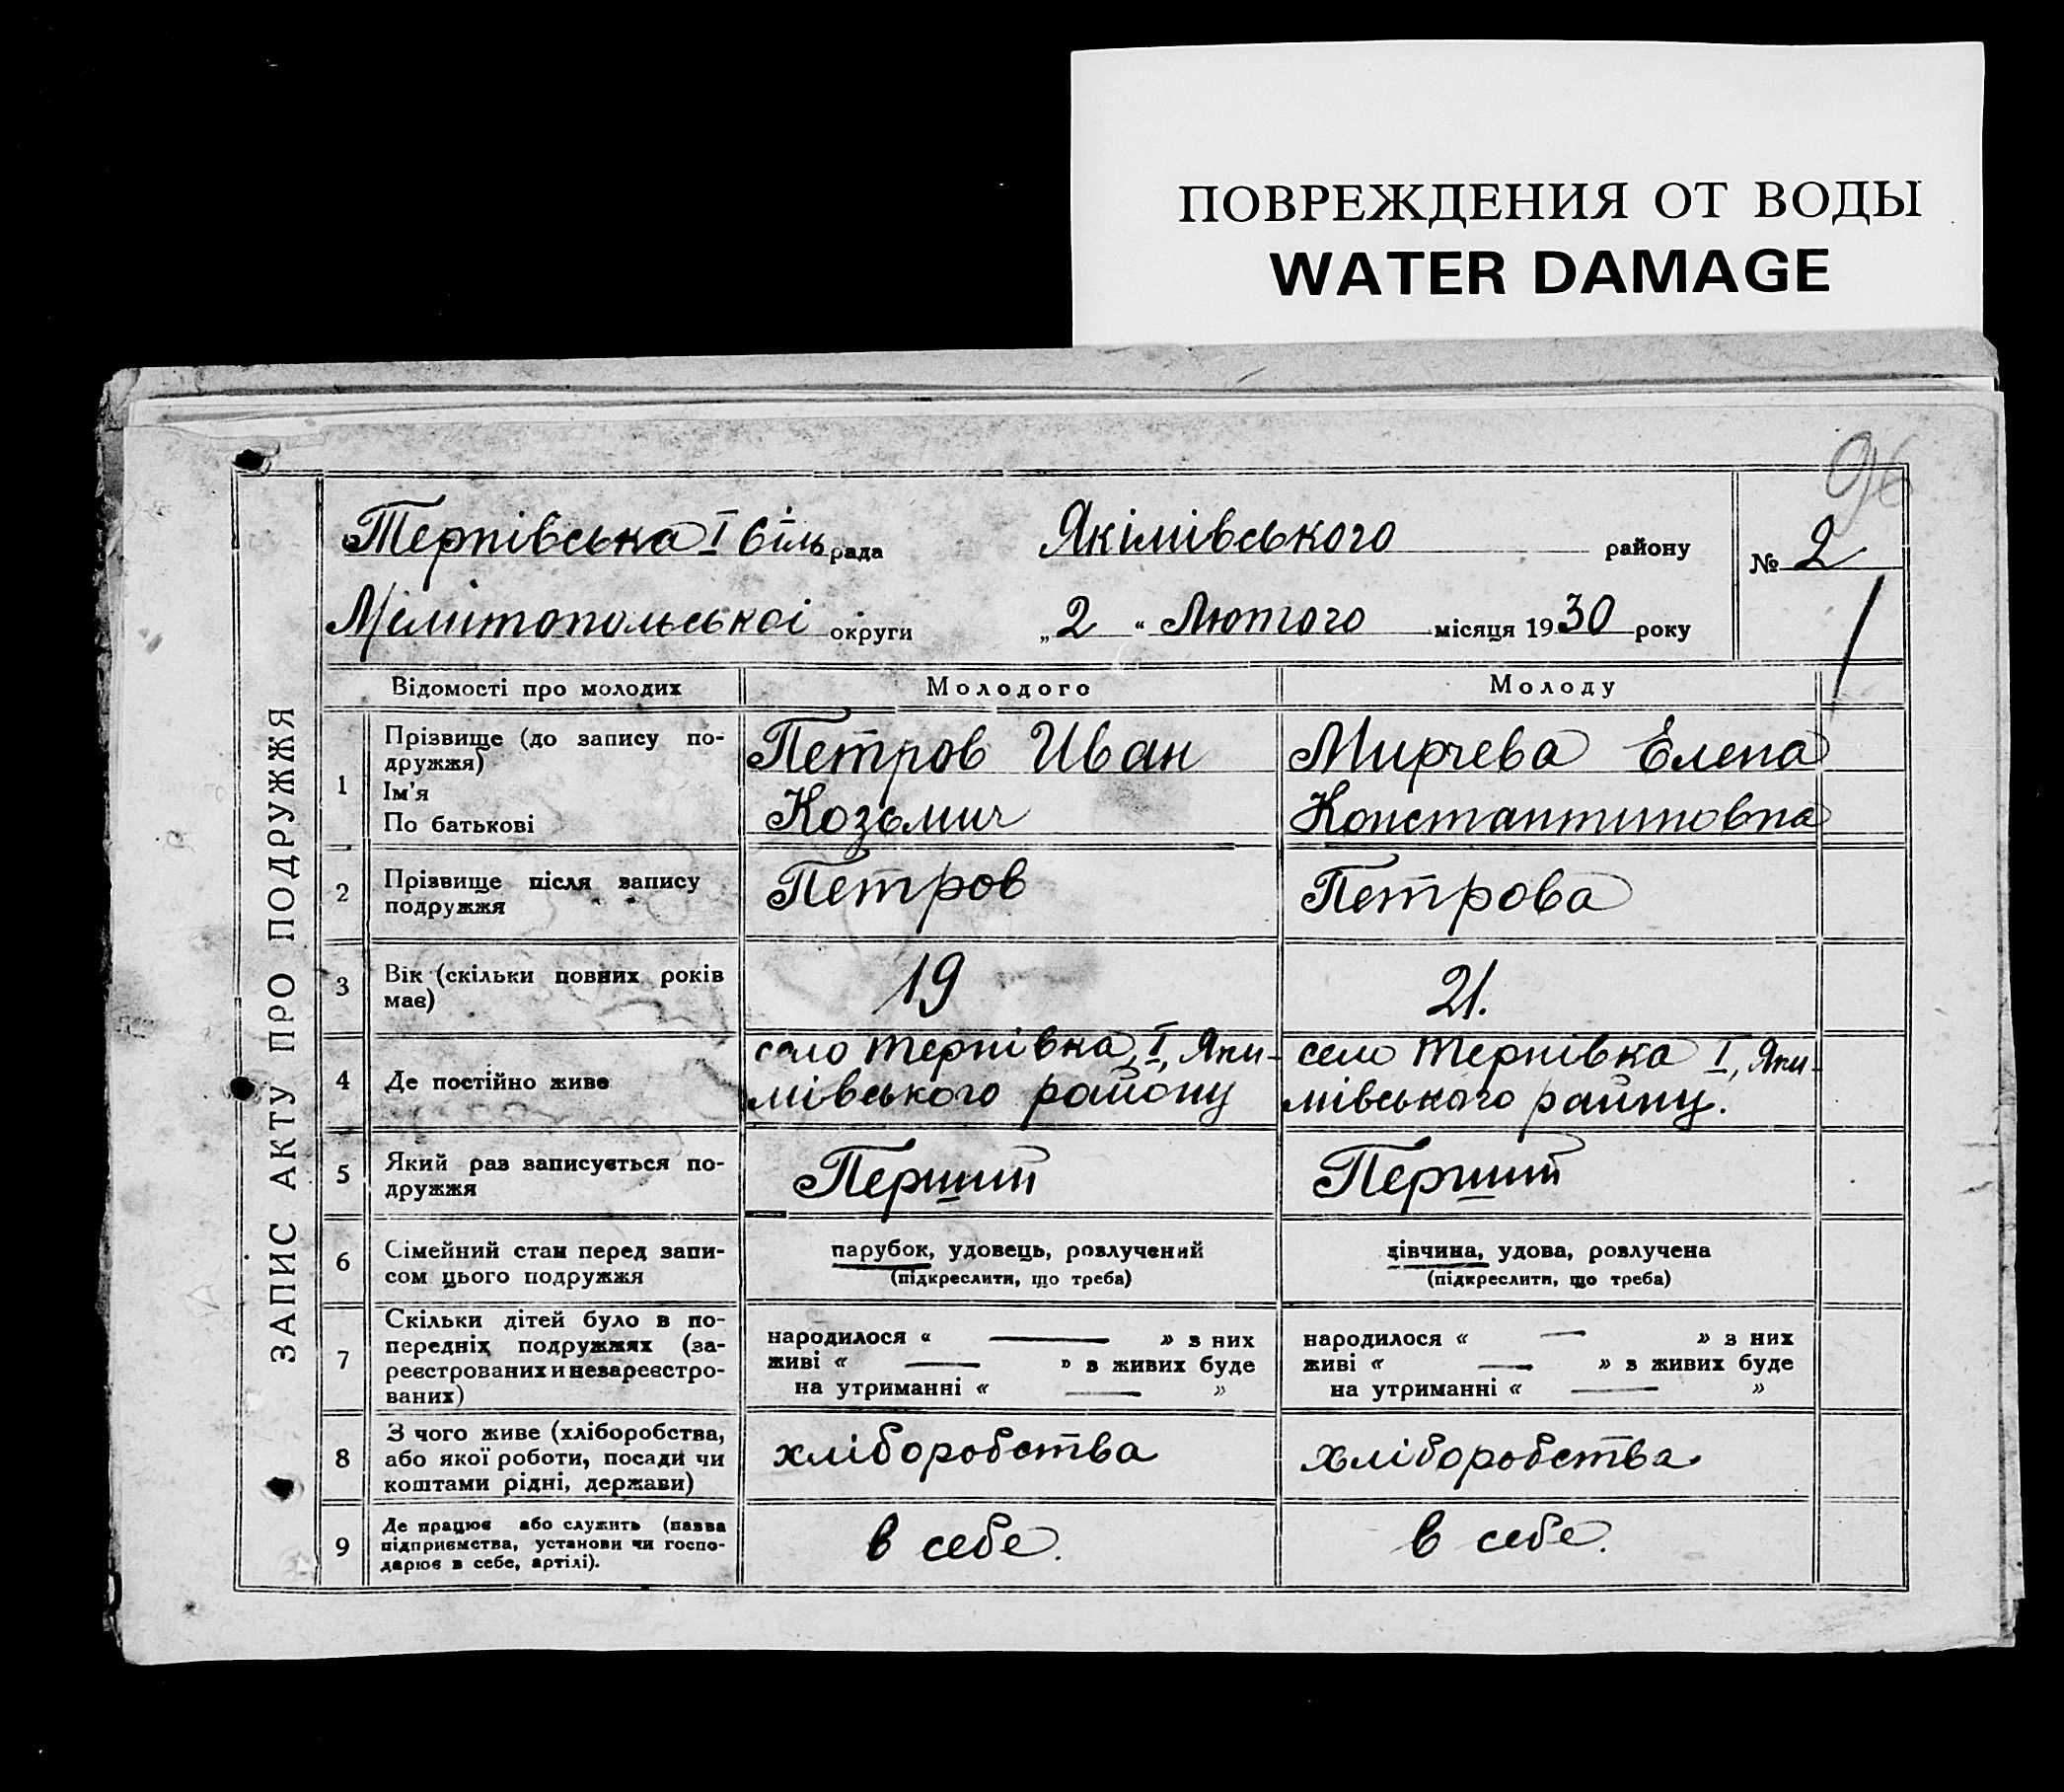 ПОВРЕЖДЕНИЯ ОТ ВОДЫ
WATER DAMAGE
96
ЗАПИС АКТУ ПРО ПОДРУЖЖЯ
Тернівська I сіль рада Якімівського району № 2
Мелітопольскоі округи „2“ Лютого місяця 1930 року
Відомості про молодих Молодого Молоду
1 Прізвище (до запису по-
дружжя)
Ім'я
По батькові
Петров Иван
Козьмич
Мирчева Елена
Константиновна
2 Прізвище після запису
подружжя
Петров
Петрова
3 Вік (скільки повних років
має)
19
21.
4 Де постійно живе
село Тернівка I, Яки-
мівського району
село Тернівка I, Яки-
мівського райну.
5 Який раз записується по-
дружжя
Перший
Перший
6 Сімейний стан перед запи-
сом цього подружжя
парубок, удовець, розлучений
(підкреслити, що треба)
дівчина, удова, розлучена
(підкреслити, що треба)
7 Скільки дітей було в по-
передніх подружжях (за-
реєстрованих и незареєстро-
ваних)
народилося « — » з них
живі « — » з живих буде
на утриманні « — »
народилося « — » з них
живі « — » з живих буде
на утриманні « — »
8 З чого живе (хліборобства,
або якої роботи, посади чи
коштами рідні, держави)
хліборобства
хліборобства
9 Де працює або служить (назва
підприємства, установи чи госпо-
дарює в себе, артілі).
в себе.
в себе.